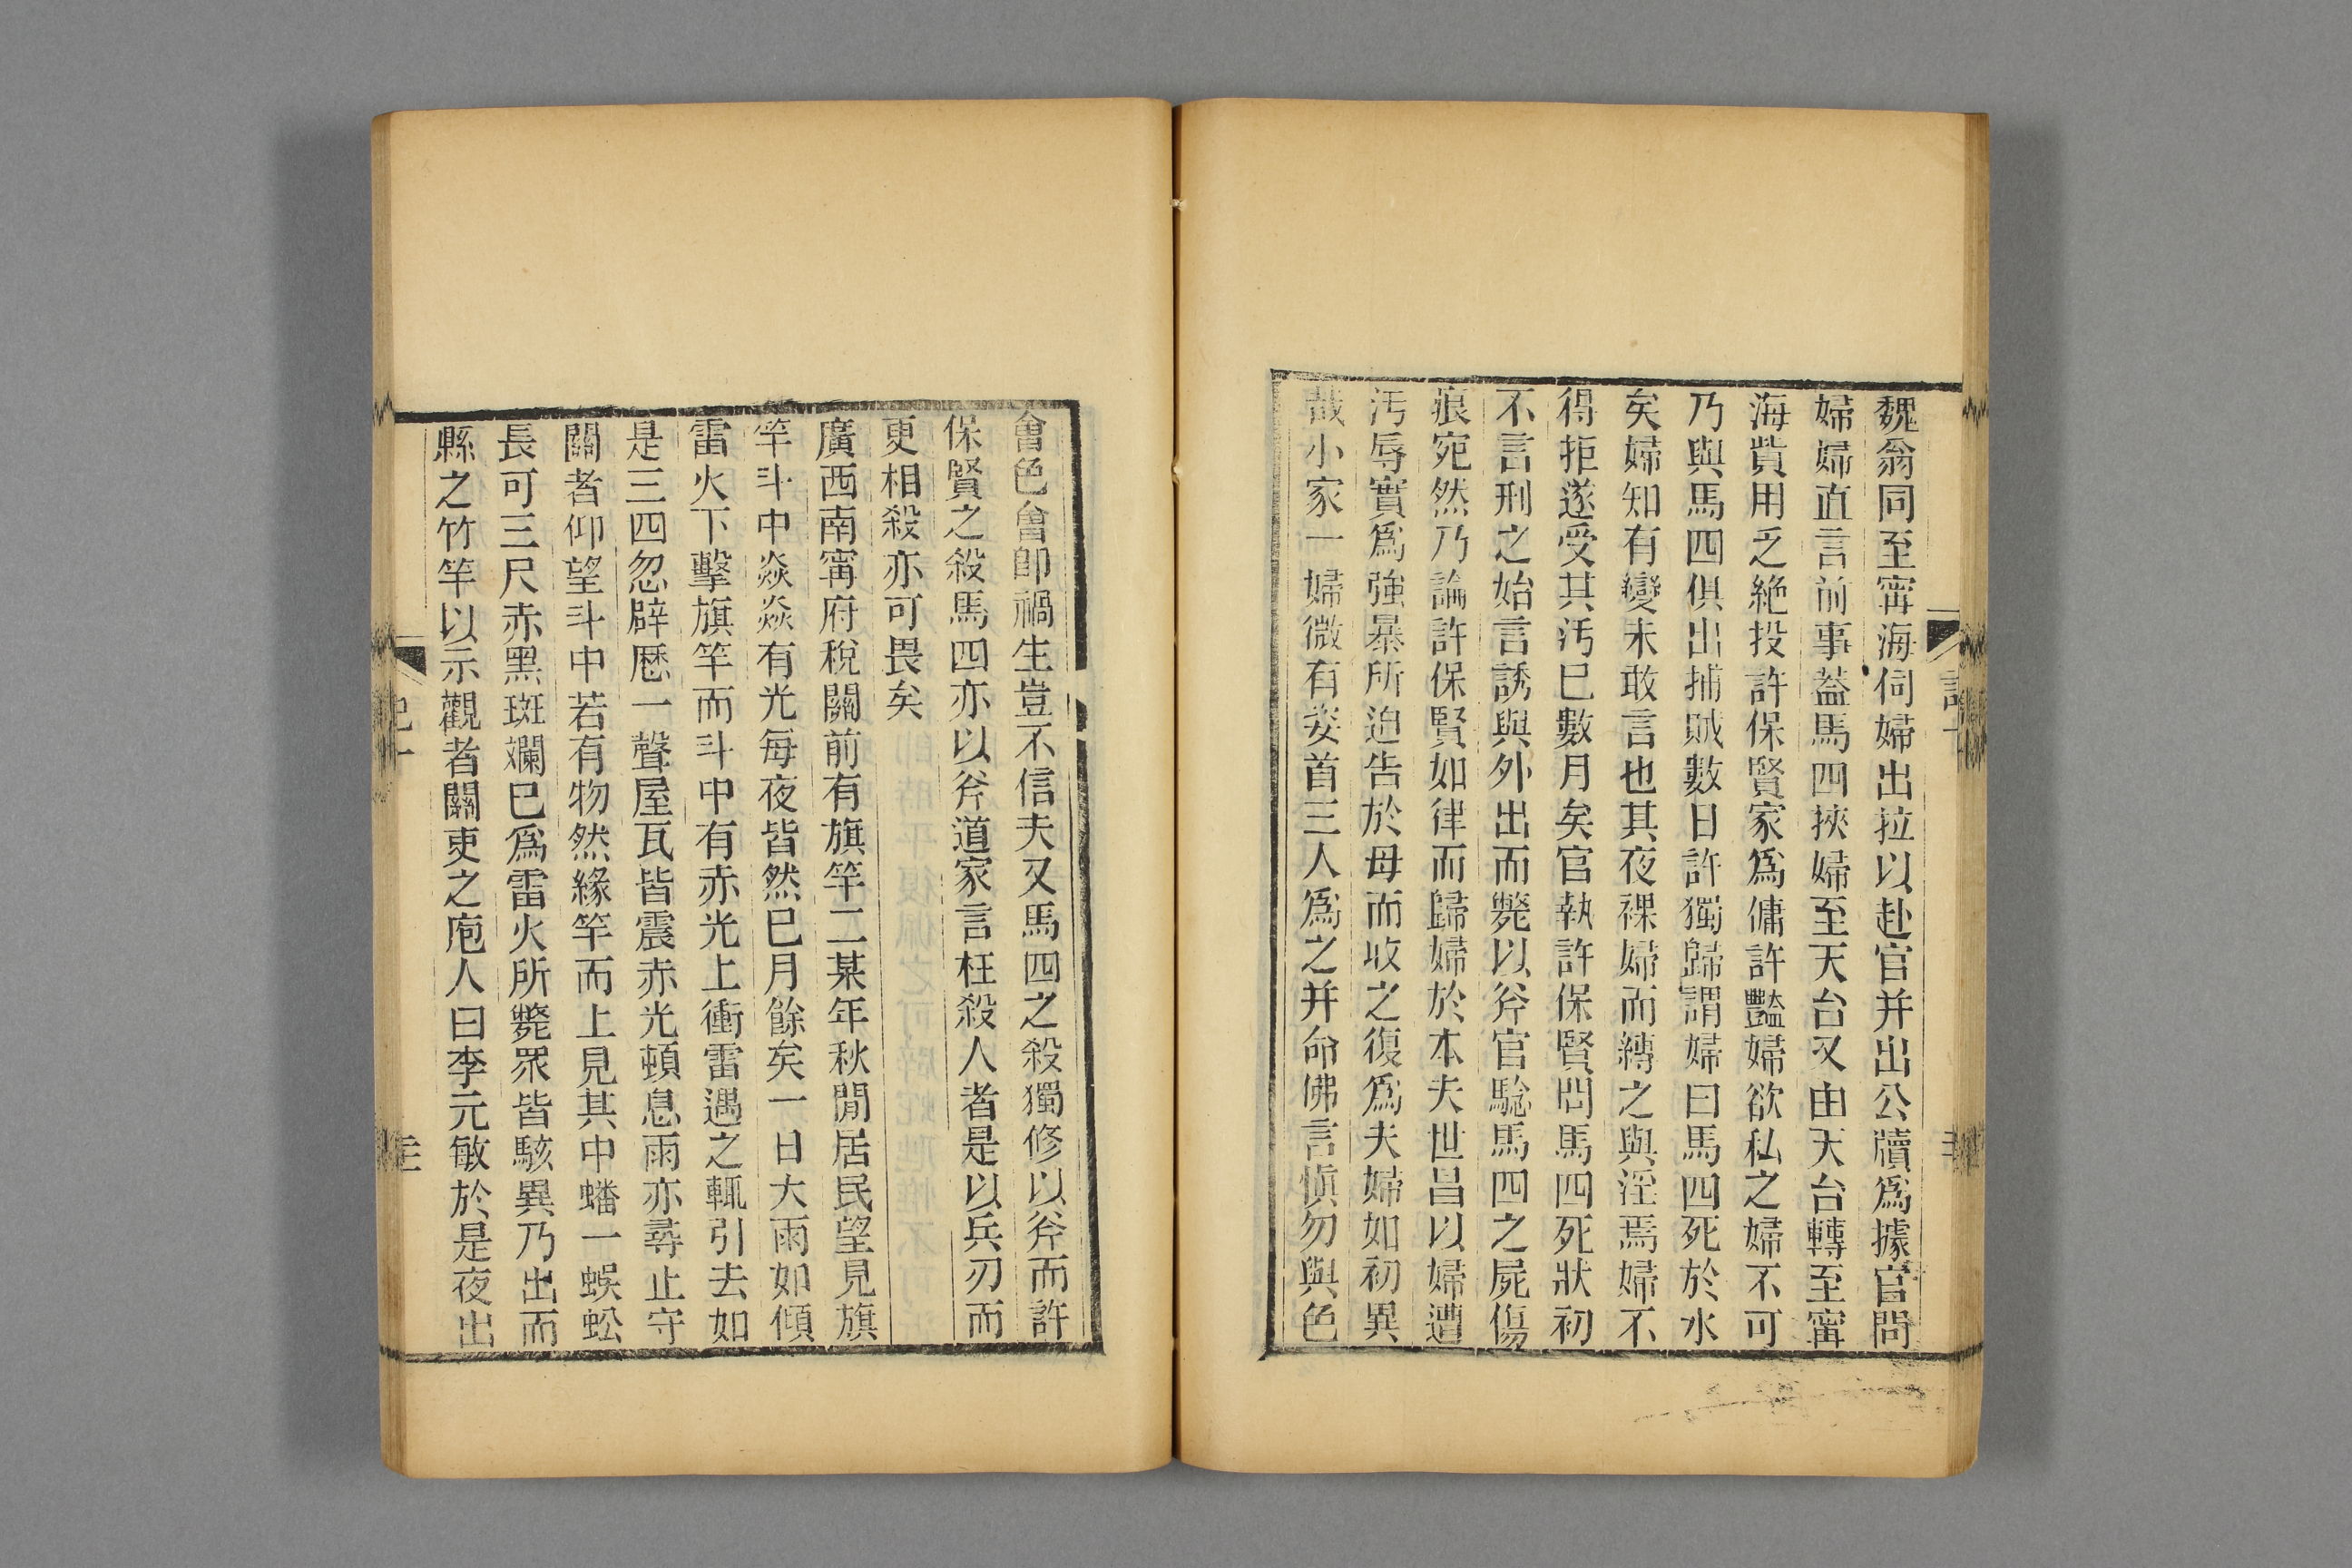 魏翁同至甯海伺婦出拉以赴官并出公牘爲據官問
婦婦直言前事葢馬四挾婦至天台又由天台轉至甯
海貲用乏絶投許保賢家爲傭許豔婦欲私之婦不可
乃與馬四俱出捕賊數日許獨歸謂婦曰馬四死於水
矣婦知有變未敢言也其夜裸婦而縛之與淫焉婦不
得拒遂受其汚巳數月矣官執許保賢問馬四死狀初
不言刑之始言誘與外出而斃以斧官騐馬四之屍傷
痕宛然乃論許保賢如律而歸婦於本夫世昌以婦遭
汚辱實爲強暴所迫告於母而收之復爲夫婦如初異
哉小家一婦微有姿首三人爲之并命佛言愼勿與色
會色會卽禍生豈不信夫又馬四之殺獨修以斧而許
保賢之殺馬四亦以斧道家言枉殺人者是以兵刃而
更相殺亦可畏矣
廣西南甯府稅關前有旗竿二某年秋閒居民望見旗
竿斗中焱焱有光每夜皆然巳月餘矣一日大雨如傾
雷火下擊旗竿而斗中有赤光上衝雷遇之輒引去如
是三四忽辟厯一聲屋瓦皆震赤光頓息雨亦尋止守
關者仰望斗中若有物然緣竿而上見其中蟠一蜈蚣
長可三尺赤黑斑斕巳爲雷火所斃眾皆駭異乃出而
縣之竹竿以示觀者關吏之庖人曰李元敏於是夜出